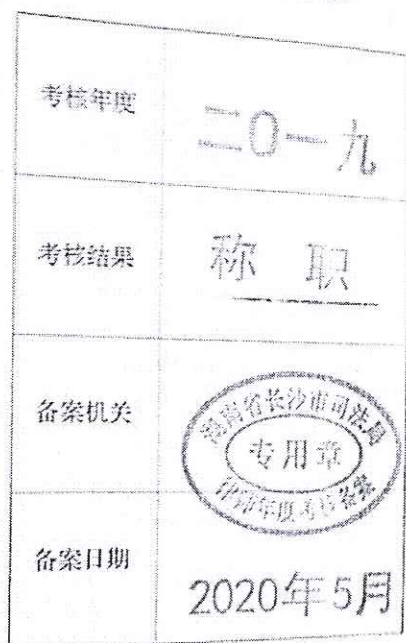 考核年度
二〇一九
考核结果
称 职
备案机关
湖南省长沙市司法局
专用章
律师年度考核备案
备案日期
2020年5月